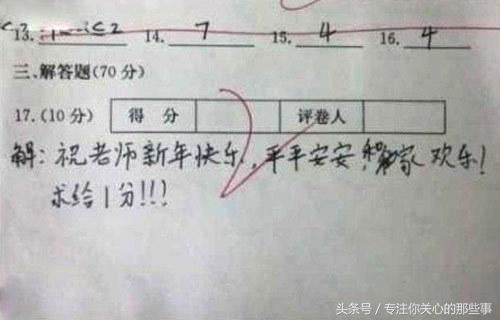 13. 14. 7 15. 4 16. 4
三、解答题(70分)
17.(10分) 得 分 评卷人
解：祝老师新年快乐，平平安安，家欢乐！
求给1分!!!
头条号／专注你关心的那些事